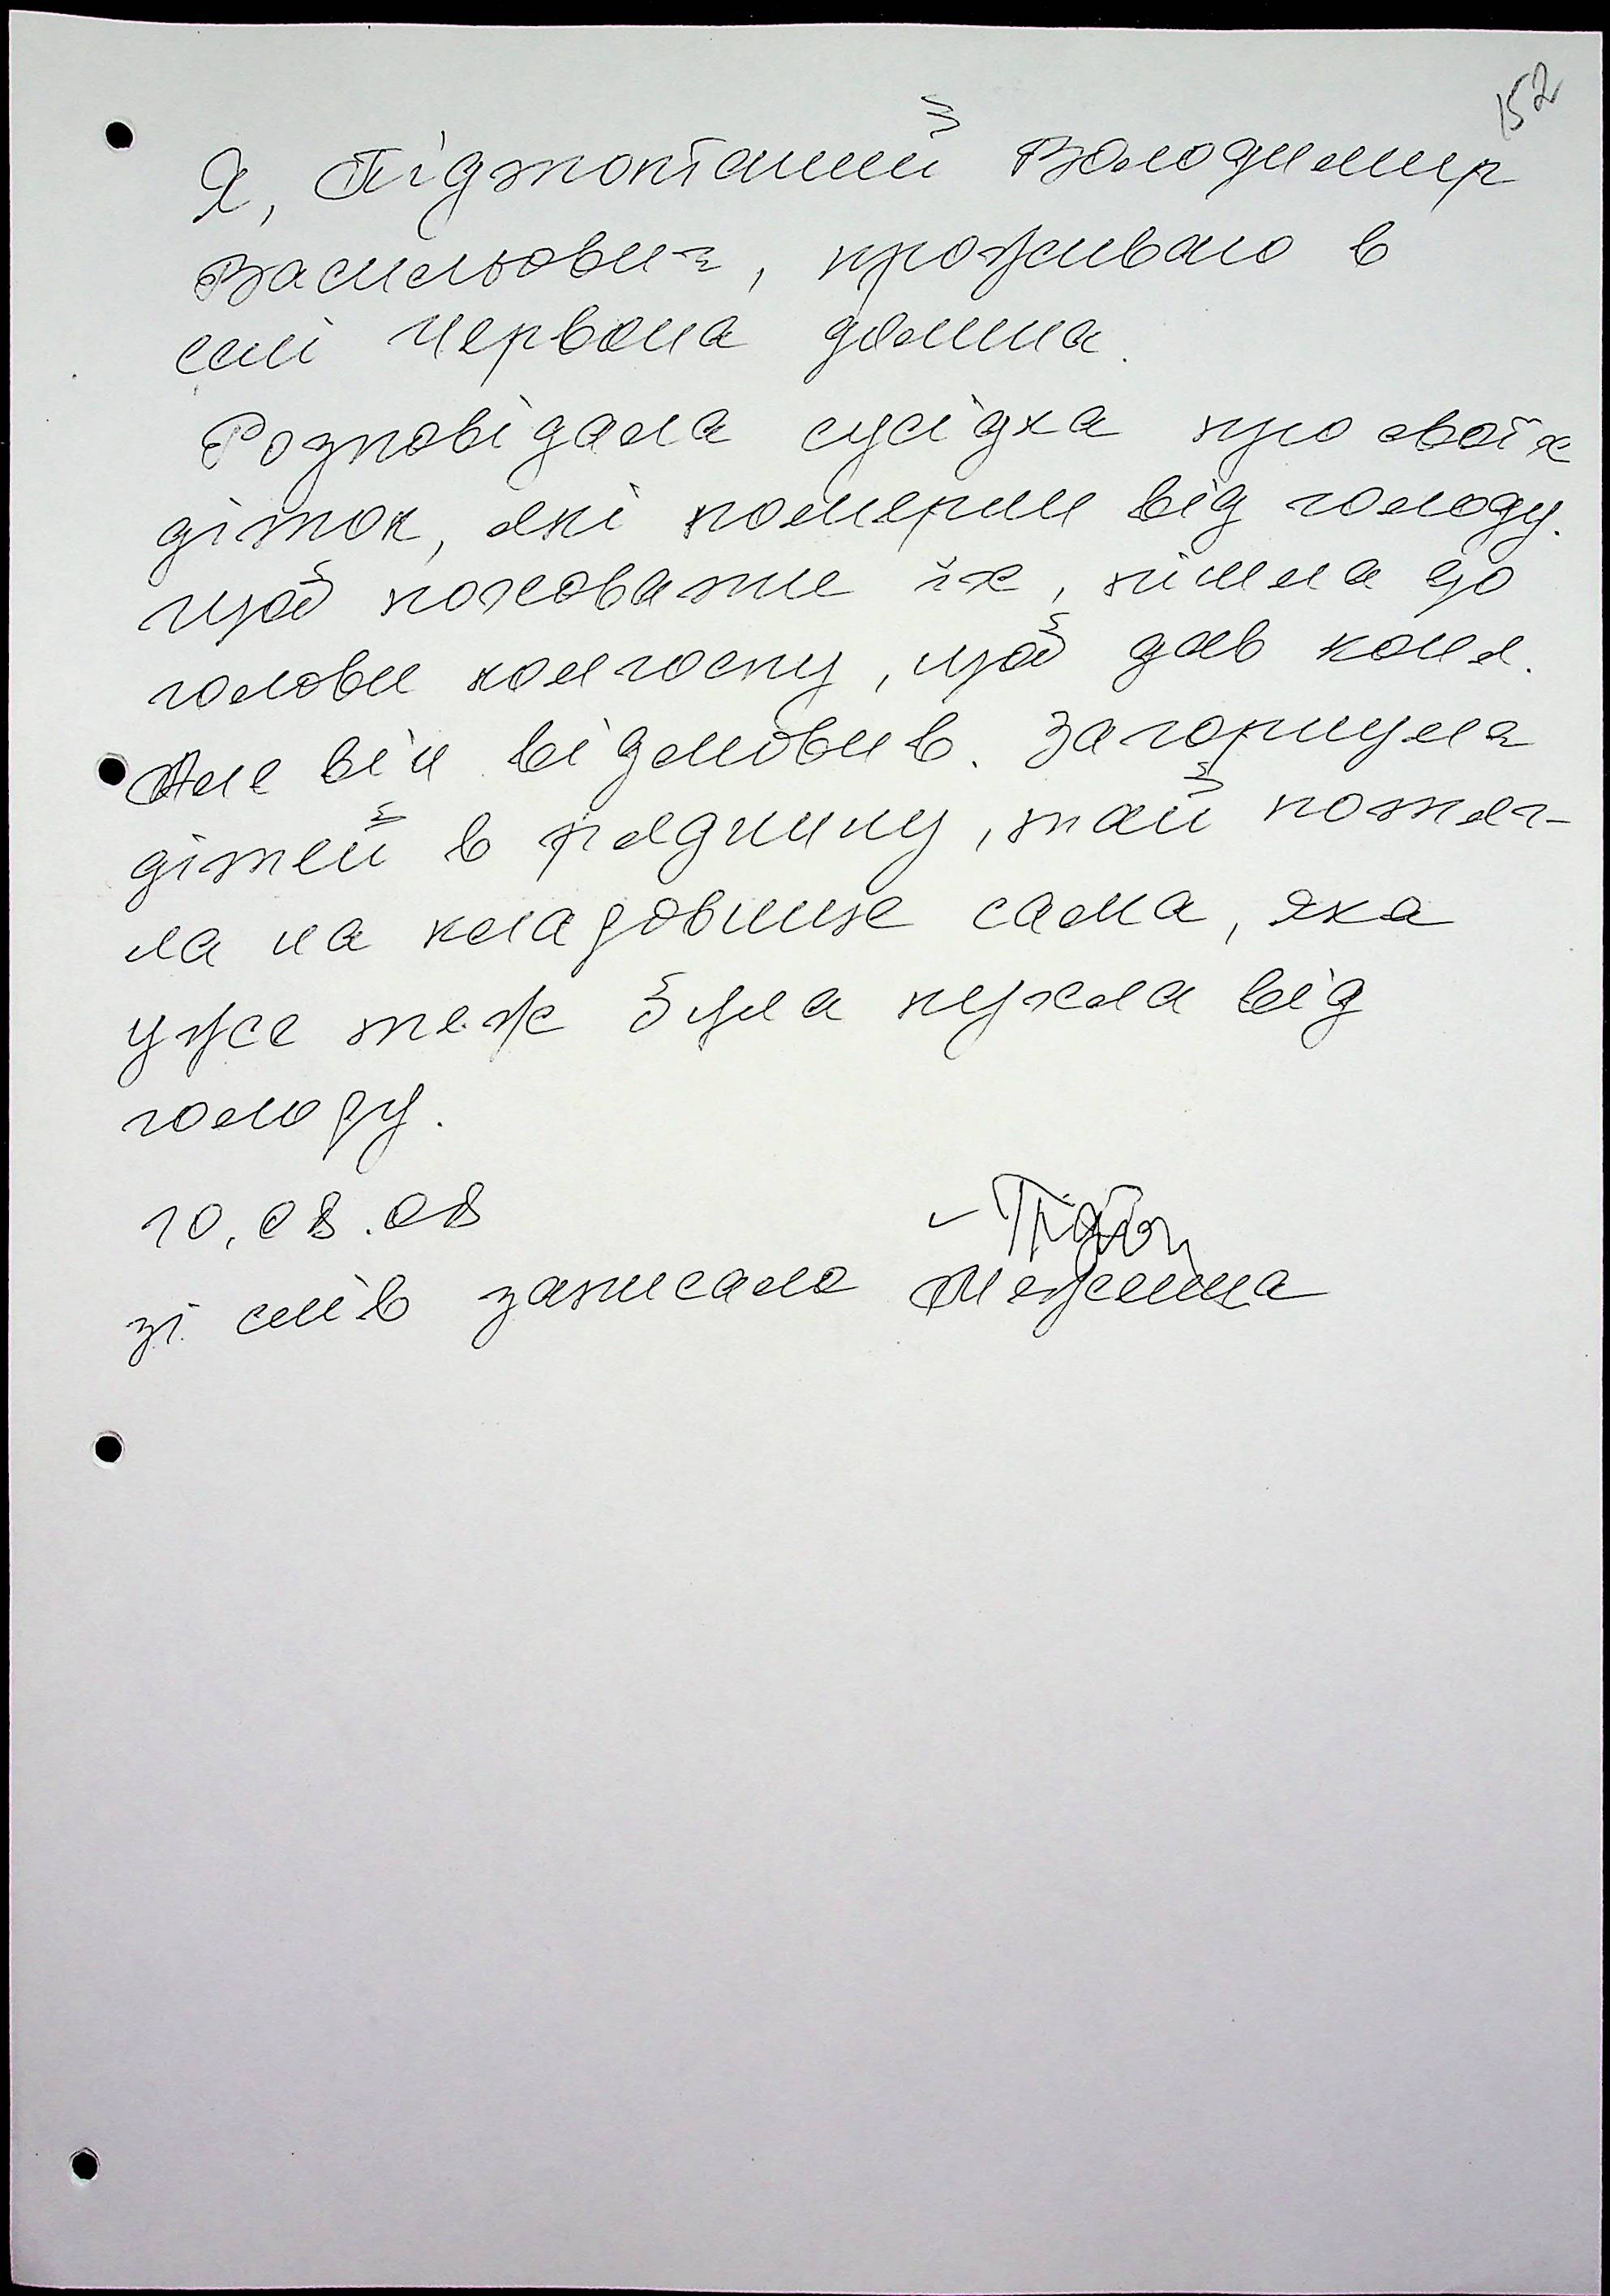 152
Я, Підтоптаний Володимир
Васильович, проживаю в
селі Червона долина.
Розповідала сусідка про своїх
діток, які померли від голоду.
Щоб поховати їх, пішла до
голови колгоспу, щоб дав коня.
Але він відмовив. Загорнула
дітей в ряднину, тай потяг-
ла на кладовище сама, яка
уже теж була пухла від
голоду.
10.08.08
зі слів записала